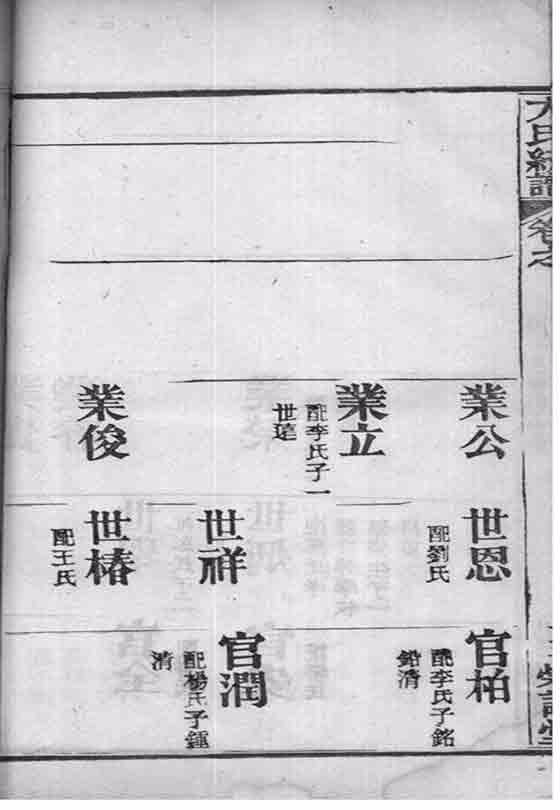 氏
譜
業公
業立
配李氏子一
世瑄
業俊
世恩
配劉氏
世祥
世椿
配王氏
官柏
配李氏子銘
鉛清
官潤
配楊氏子鍾
清